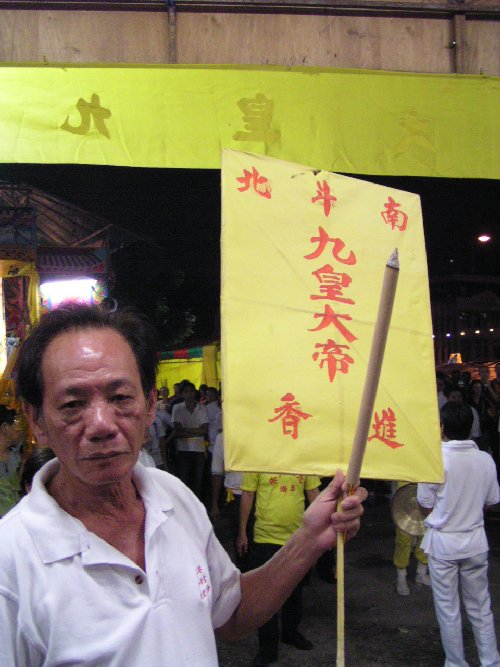 九 皇
北 斗 南
九皇大帝
香 進